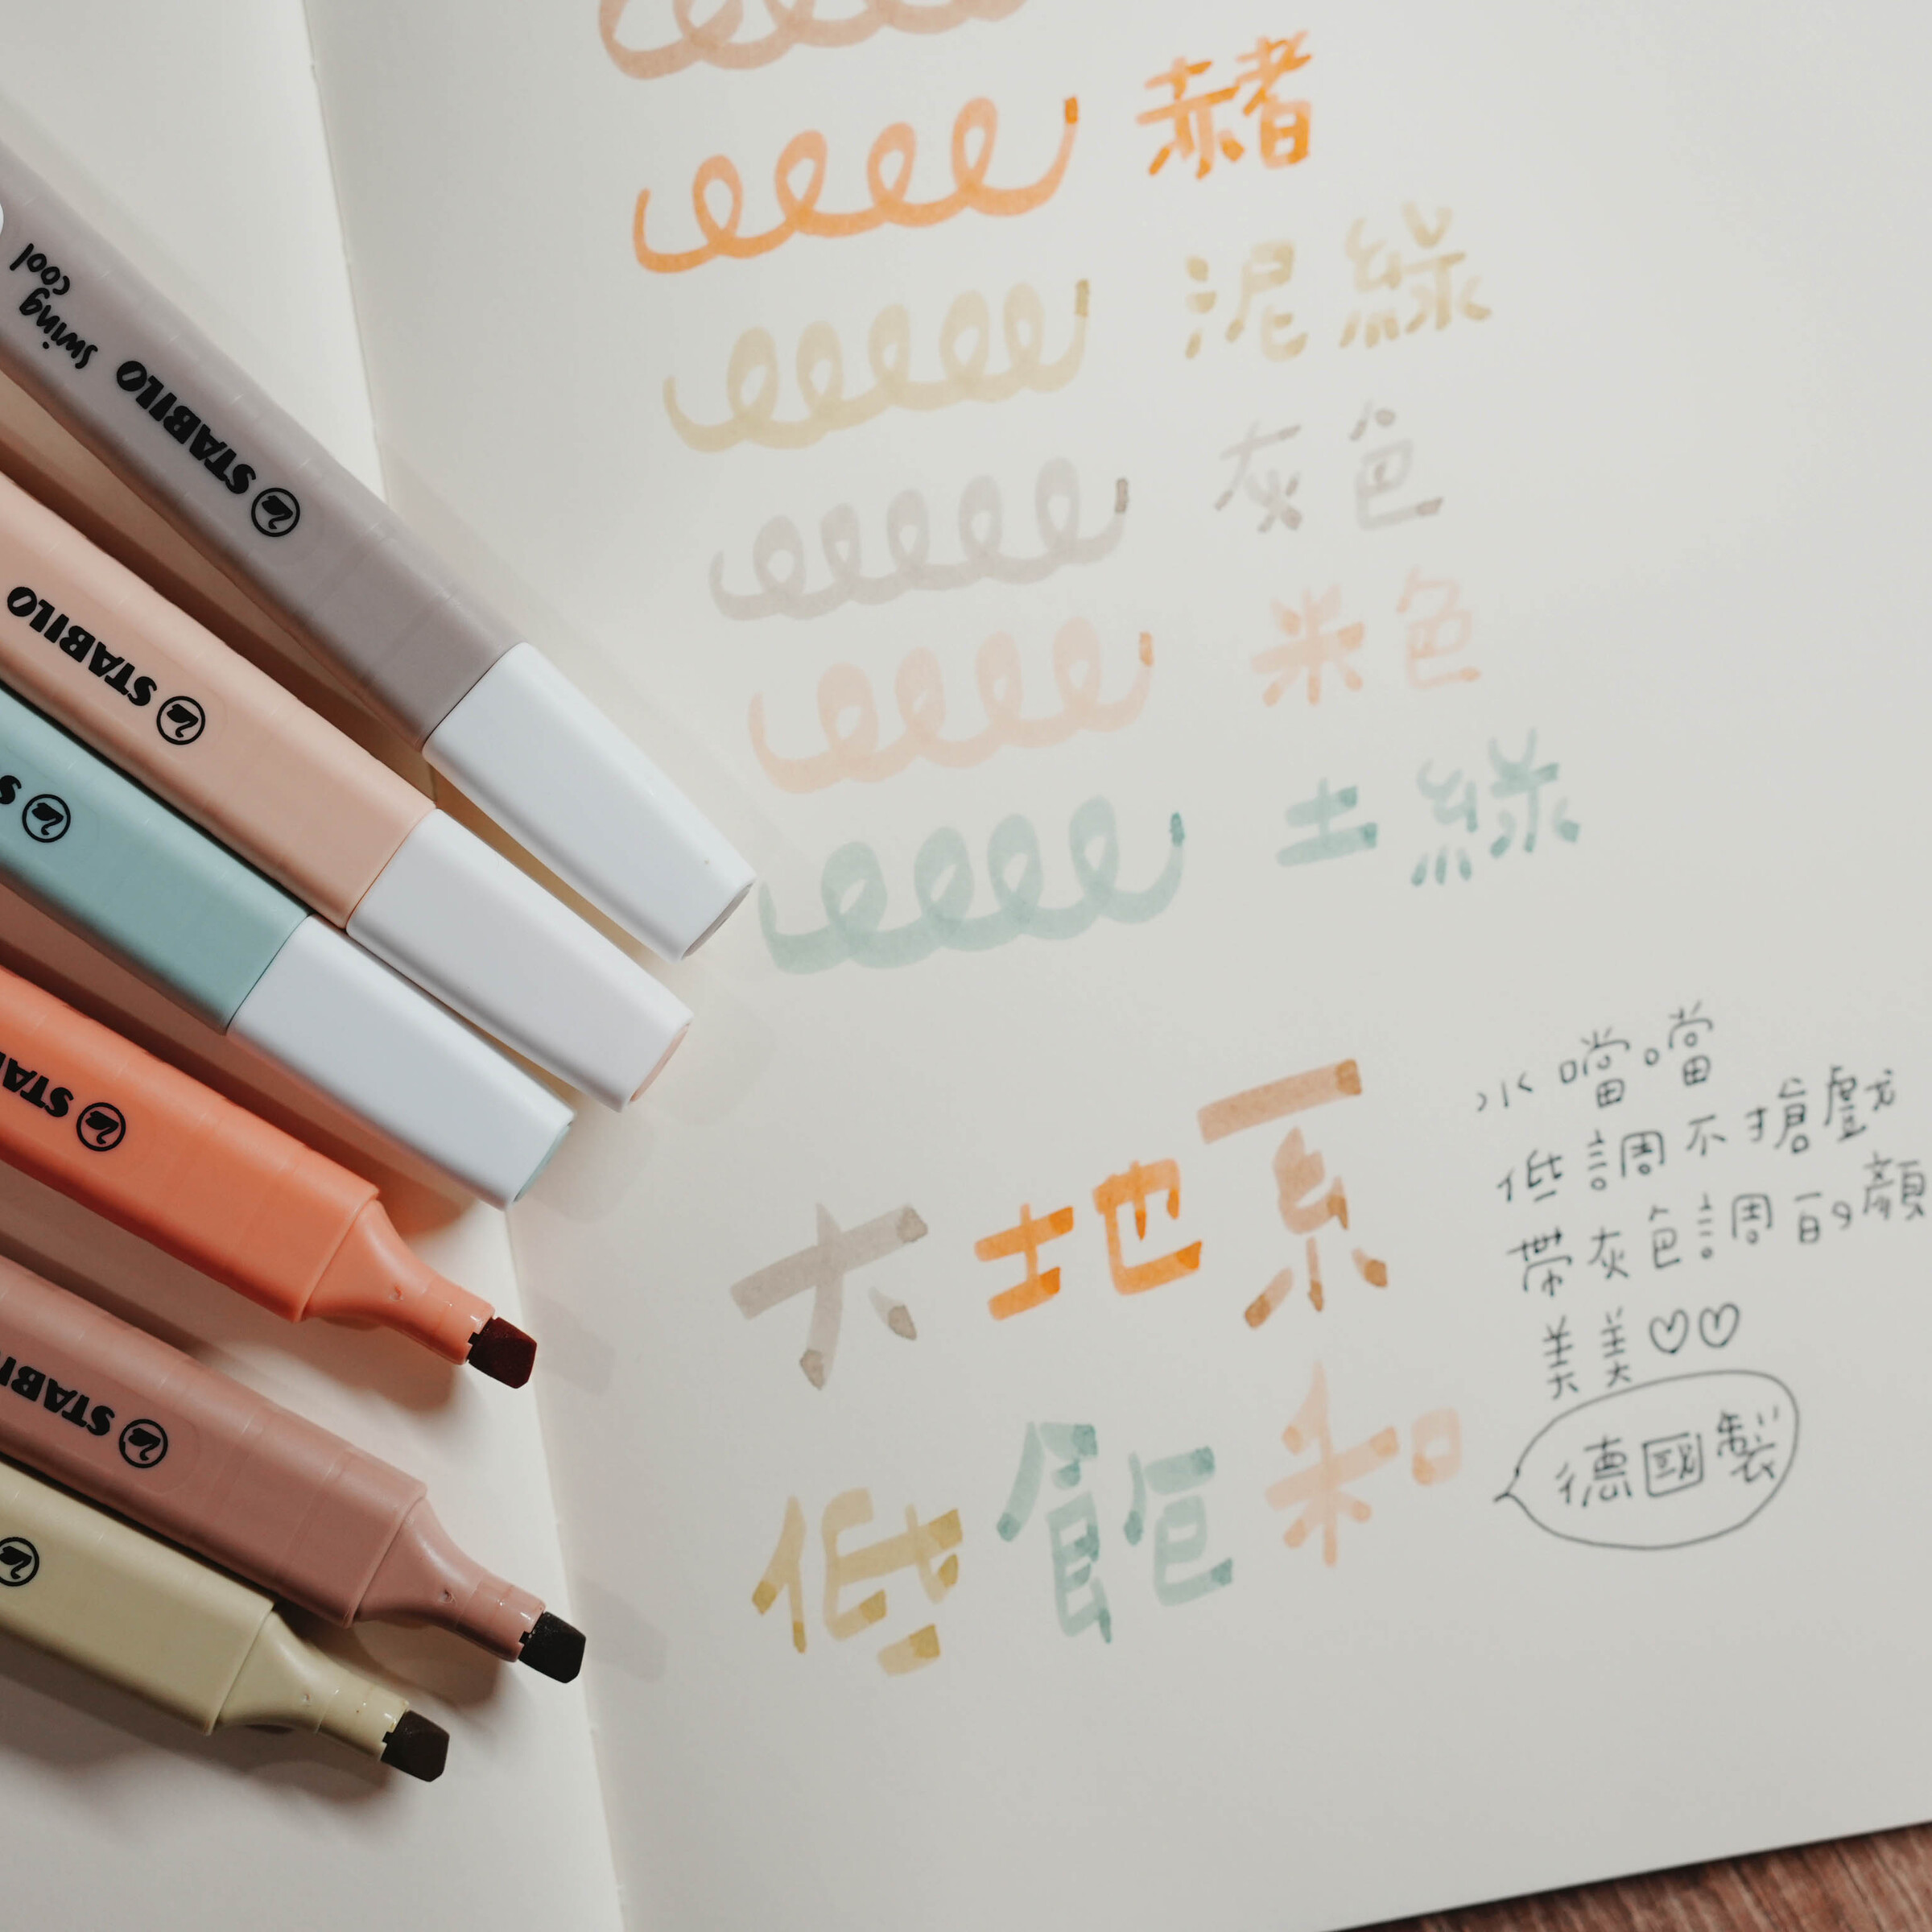 赭
泥綠
灰色
米色
土綠
大地系
低飽和
水噹噹
低調不搶戲
帶灰色調的顏
美美♡♡
德國製
swing cool
STABILO
STABILO
S
STA
STABI